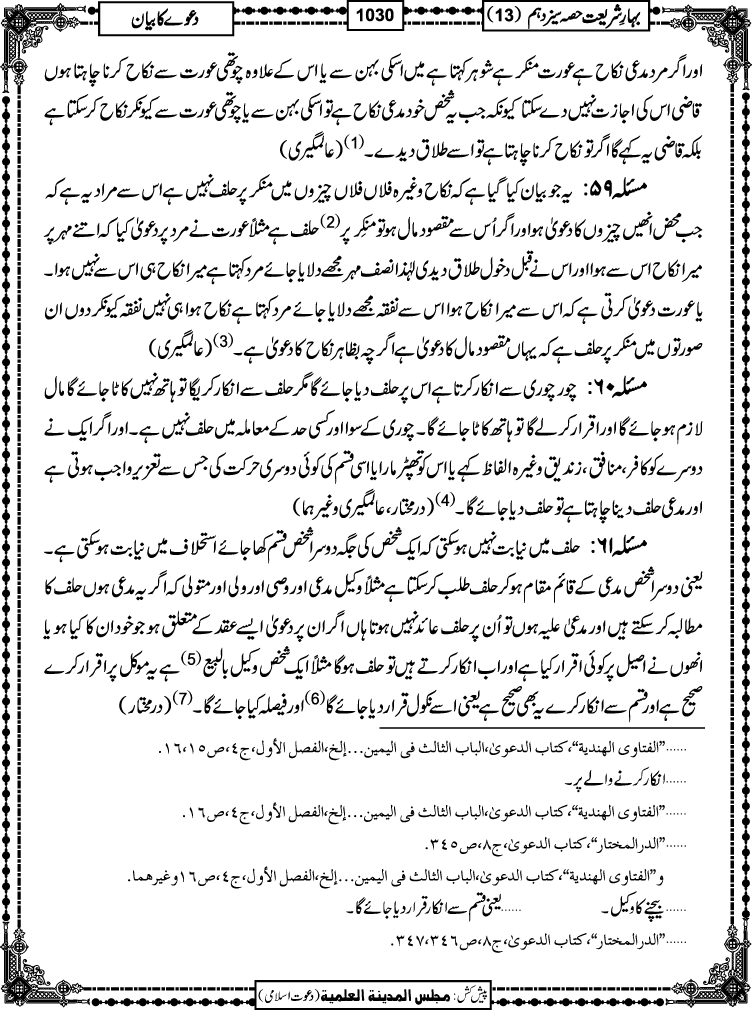 بہارِ شریعت حصہ سیزدہم (13)
1030
دعوے کا بیان
اور اگر مرد مدعی نکاح ہے عورت منکر ہے شوہر کہتا ہے میں اسکی بہن سے یا اس کے علاوہ چوتھی عورت سے نکاح کرنا چاہتا ہوں
قاضی اس کی اجازت نہیں دے سکتا کیونکہ جب یہ شخص خود مدعی نکاح ہے تو اسکی بہن سے یا چوتھی عورت سے کیونکر نکاح کرسکتا ہے
بلکہ قاضی یہ کہے گا اگر تو نکاح کرنا چاہتا ہے تو اسے طلاق دیدے۔(1) (عالمگیری)
مسئلہ ۵۹: یہ جو بیان کیا گیا ہے کہ نکاح وغیرہ فلاں فلاں چیزوں میں منکر پر حلف نہیں ہے اس سے مراد یہ ہے کہ
جب محض انھیں چیزوں کا دعویٰ ہو اور اگر اُس سے مقصود مال ہو تو منکر پر(2) حلف ہے مثلاً عورت نے مرد پر دعویٰ کیا کہ اتنے مہر پر
میرا نکاح اس سے ہوا اور اس نے قبل دخول طلاق دیدی لہٰذا نصف مہر مجھے دلایا جائے مرد کہتا ہے میرا نکاح ہی اس سے نہیں ہوا۔
یا عورت دعویٰ کرتی ہے کہ اس سے میرا نکاح ہوا اس سے نفقہ مجھے دلایا جائے مرد کہتا ہے نکاح ہوا ہی نہیں نفقہ کیونکر دوں ان
صورتوں میں منکر پر حلف ہے کہ یہاں مقصود مال کا دعویٰ ہے اگرچہ بظاہر نکاح کا دعویٰ ہے۔(3) (عالمگیری)
مسئلہ ۶۰: چور چوری سے انکار کرتا ہے اس پر حلف دیا جائے گا مگر حلف سے انکار کریگا تو ہاتھ نہیں کاٹا جائے گا مال
لازم ہو جائے گا اور اقرار کرلے گا تو ہاتھ کاٹا جائے گا۔ چوری کے سوا اور کسی حد کے معاملہ میں حلف نہیں ہے۔ اور اگر ایک نے
دوسرے کو کافر، منافق، زندیق وغیرہ الفاظ کہے یا اس کو تھپڑ مارا یا اسی قسم کی کوئی دوسری حرکت کی جس سے تعزیر واجب ہوتی ہے
اور مدعی حلف دینا چاہتا ہے تو حلف دیا جائے گا۔(4) (درمختار، عالمگیری وغیرہما)
مسئلہ ۶۱: حلف میں نیابت نہیں ہوسکتی کہ ایک شخص کی جگہ دوسرا شخص قسم کھا جائے استحلاف میں نیابت ہوسکتی ہے۔
یعنی دوسرا شخص مدعی کے قائم مقام ہو کر حلف طلب کرسکتا ہے مثلاً وکیل مدعی اور وصی اور ولی اور متولی کہ اگر یہ مدعی ہوں حلف کا
مطالبہ کرسکتے ہیں اور مدعیٰ علیہ ہوں تو اُن پر حلف عائد نہیں ہوتا ہاں اگر ان پر دعویٰ ایسے عقد کے متعلق ہو جو خود ان کا کیا ہو یا
انھوں نے اصیل پر کوئی اقرار کیا ہے اور اب انکار کرتے ہیں تو حلف ہوگا مثلاً ایک شخص وکیل بالبیع(5) ہے یہ موکل پر اقرار کرے
صحیح ہے اور قسم سے انکار کرے یہ بھی صحیح ہے یعنی اسے نکول قرار دیا جائے گا(6) اور فیصلہ کیا جائے گا۔(7) (درمختار)
......”الفتاوی الھندیة“، کتاب الدعویٰ، الباب الثالث فی الیمین...إلخ، الفصل الأول، ج٤، ص١٥، ١٦.
......انکار کرنے والے پر۔
......”الفتاوی الھندیة“، کتاب الدعویٰ، الباب الثالث فی الیمین...إلخ، الفصل الأول، ج٤، ص١٦.
......”الدرالمختار“، کتاب الدعویٰ، ج٨، ص٣٤٥.
و”الفتاوی الھندیة“، کتاب الدعویٰ، الباب الثالث فی الیمین...إلخ، الفصل الأول، ج٤، ص١٦ وغیرھما.
......بیچنے کا وکیل۔ ......یعنی قسم سے انکار قرار دیا جائے گا۔
......”الدرالمختار“، کتاب الدعویٰ، ج٨، ص٣٤٦، ٣٤٧.
پیش کش: مجلس المدینة العلمیة (دعوت اسلامی)